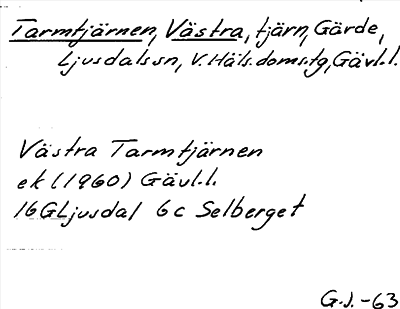 Tarmtjärnen, Västra, tjärn, Gärde,
Ljusdals sn, V. Häls. doms.tg, Gävl.l.
Västra Tarmtjärnen
ek (1960) Gävl.l.
16G Ljusdal 6c Selberget
G.J.-63